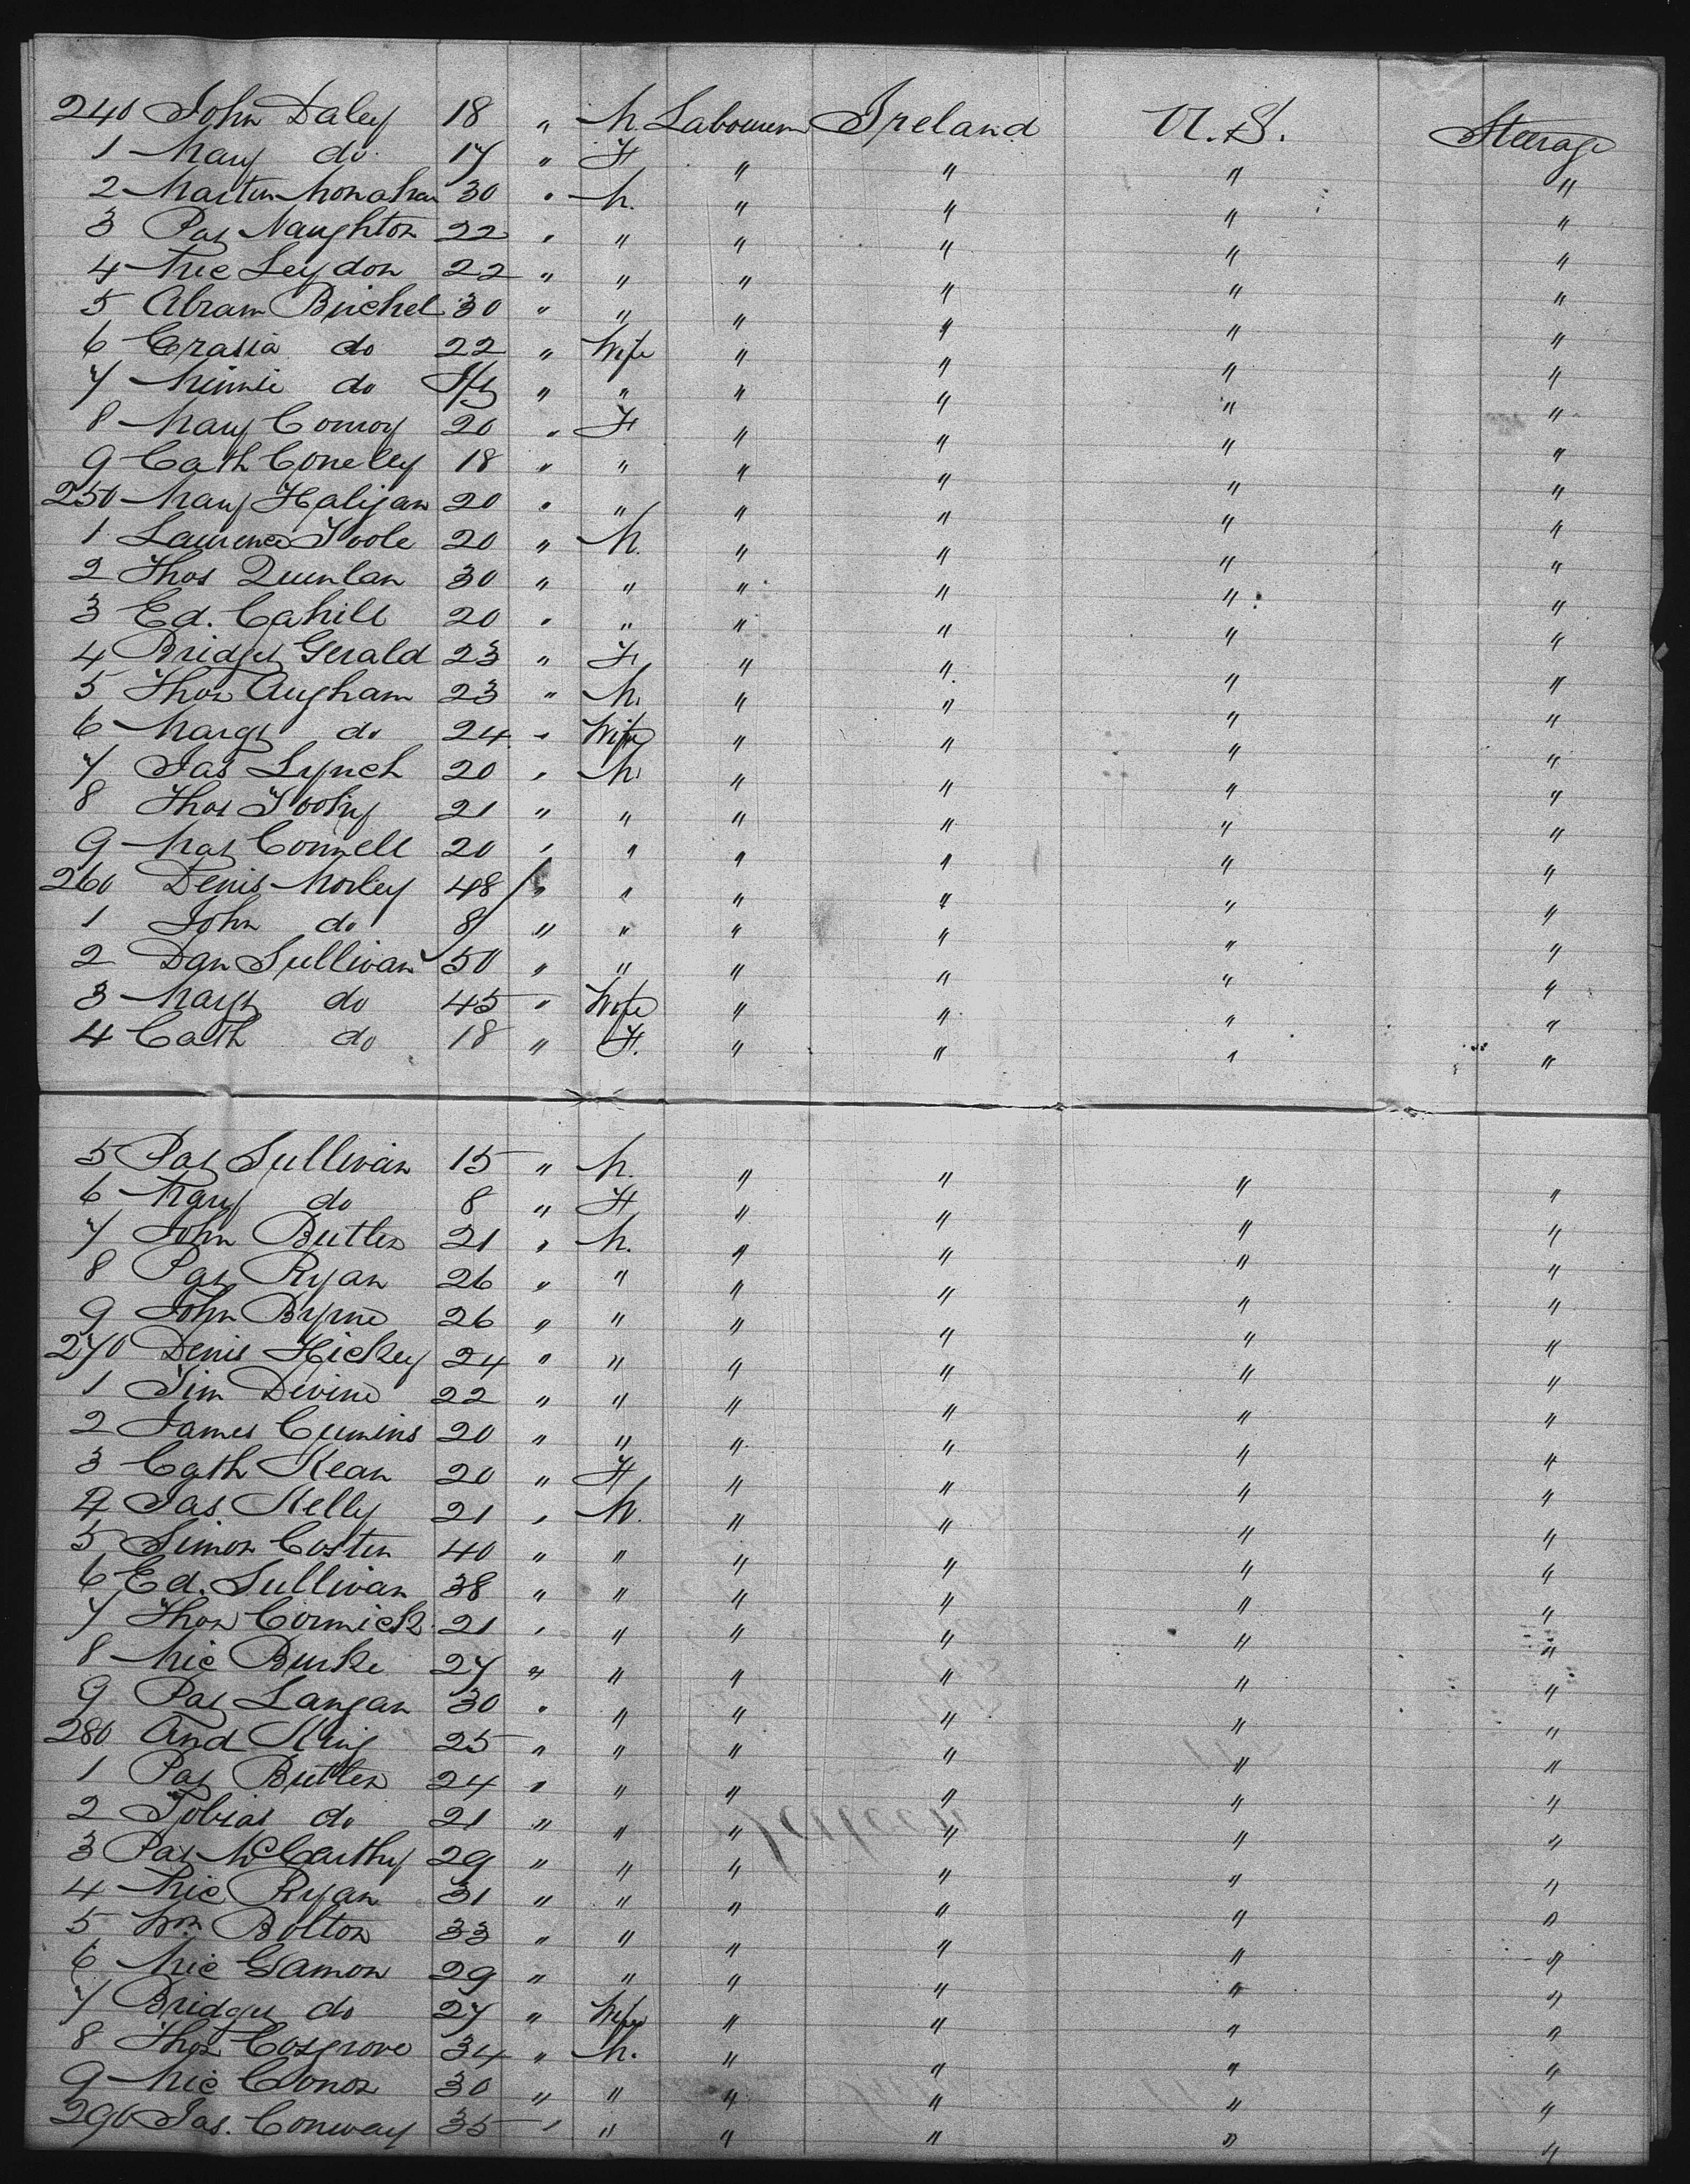 240 John Daley 18 " M. Labourer Ireland U.S. Steerage
1 Mary do 17 " F " " " "
2 Martin Monahan 30 " M. " " " "
3 Pat Naughton 22 " " " " " "
4 Mic Leydon 22 " " " " " "
5 Abram Buchel 30 " " " " " "
6 Crasia do 22 " Wife " " " "
7 Minnie do " " " " " "
8 Mary Conroy 20 " F " " " "
9 Cath Coneley 18 " " " " " "
250 Mary Halijan 20 " " " " " "
1 Laurence Toole 20 " M. " " " "
2 Thos Quinlan 30 " " " " " "
3 Ed. Cahill 20 " " " " " "
4 Bridget Gerald 23 " F. " " " "
5 Thos Augham 23 " M. " " " "
6 Margt do 24 " Wife " " " "
7 Jas Lynch 20 " M " " " "
8 Thos Toohy 21 " " " " " "
9 Mat Connell 20 " " " " " "
260 Denis Morley 48 " " " " " "
1 John do 8 " " " " " "
2 Dan Sullivan 50 " " " " " "
3 Margt do 45 " Wife " " " "
4 Cath do 18 " F. " " " "
5 Pat Sullivan 15 " M. " " " "
6 Mary do 8 " F " " " "
7 John Butler 21 " M. " " " "
8 Pat Ryan 26 " " " " " "
9 John Byrne 26 " " " " " "
270 Denis Hickey 24 " " " " " "
1 Tim Devine 22 " " " " " "
2 James Cumins 20 " " " " " "
3 Cath Kean 20 " F " " " "
4 Jas. Kelly 21 " M. " " " "
5 Simon Costin 40 " " " " " "
6 Ed. Sullivan 38 " " " " " "
7 Thos Cormick 21 " " " " " "
8 Mic Burke 27 " " " " " "
9 Pat Langan 30 " " " " " "
280 And King 25 " " " " " "
1 Pat Butler 24 " " " " " "
2 Tobias do 21 " " " " " "
3 Pat McCarthy 29 " " " " " "
4 Mic Ryan 31 " " " " " "
5 Wm Bolton 33 " " " " " "
6 Mic Gamon 29 " " " " " "
7 Bridget do 27 " Wife " " " "
8 Thos Cosgrove 34 " M. " " " "
9 Mic Conor 30 " " " " " "
290 Jas. Conway 35 " " " " " "